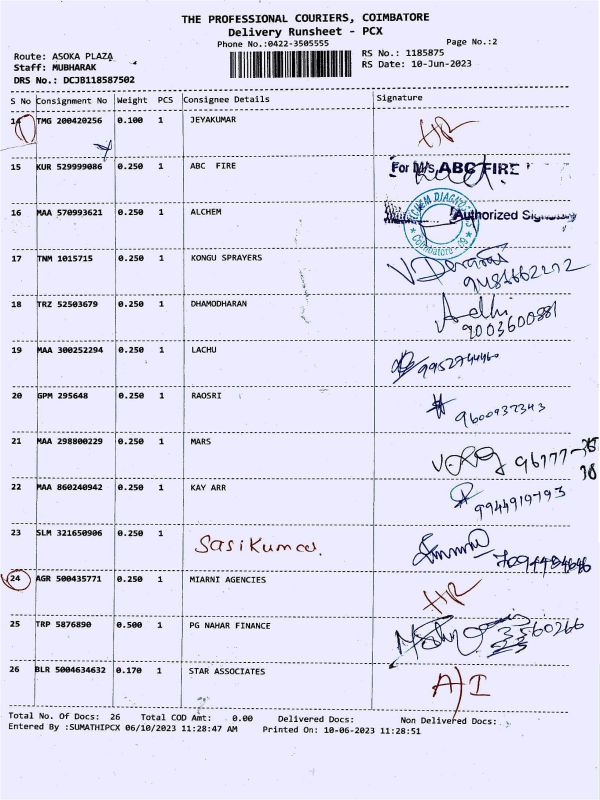 THE PROFESSIONAL COURIERS, COIMBATORE
Delivery Runsheet - PCX
Phone No.:0422-3505555
Page No.:2
Route: ASOKA PLAZA
RS No.: 1185875
Staff: MUBHARAK
RS Date: 10-Jun-2023
DRS No.: DCJB118587502
S No Consignment No Weight PCS Consignee Details Signature
14 TMG 200420256 0.100 1 JEYAKUMAR HR
15 KUR 529999086 0.250 1 ABC FIRE For M/s. ABC FIRE
16 MAA 570993621 0.250 1 ALCHEM Authorized Signatory
ALCHEM DIAGNO
Coimbatore
17 TNM 1015715 0.250 1 KONGU SPRAYERS
18 TRZ 52503679 0.250 1 DHAMODHARAN
9003600881
19 MAA 300252294 0.250 1 LACHU 9952744460
20 GPM 295648 0.250 1 RAOSRI 9600932343
21 MAA 298800229 0.250 1 MARS
22 MAA 860240942 0.250 1 KAY ARR 9944919793
23 SLM 321650906 0.250 1 Sasikumar.
24 AGR 500435771 0.250 1 MIARNI AGENCIES HR
25 TRP 5876890 0.500 1 PG NAHAR FINANCE
26 BLR 5004634632 0.170 1 STAR ASSOCIATES A/I
Total No. Of Docs: 26 Total COD Amt: 0.00 Delivered Docs: Non Delivered Docs:
Entered By :SUMATHIPCX 06/10/2023 11:28:47 AM Printed On: 10-06-2023 11:28:51